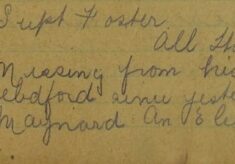 Supt Foster.
All Th
Missing from his
edford since yeste
Maynard An Ele